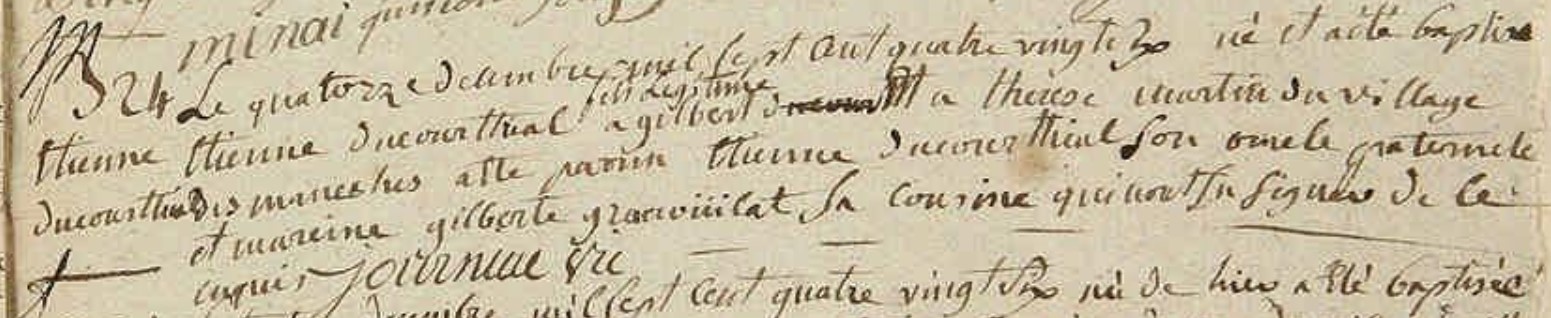 minai
B 24 Le quatorze decembre mil sept cent quatre vingt dix né et a été baptisé
fils légitime
Etienne Etienne ducourthial a gilbert et a thérèse martin du village
ducourthial des maneches a été parin Etienne ducourthial son oncle paternele
et mareine gilberte sa cousine qui nont su signer de ce
enquis journiac vic
mil sept cent quatre vingt dix né de hier a été baptisée